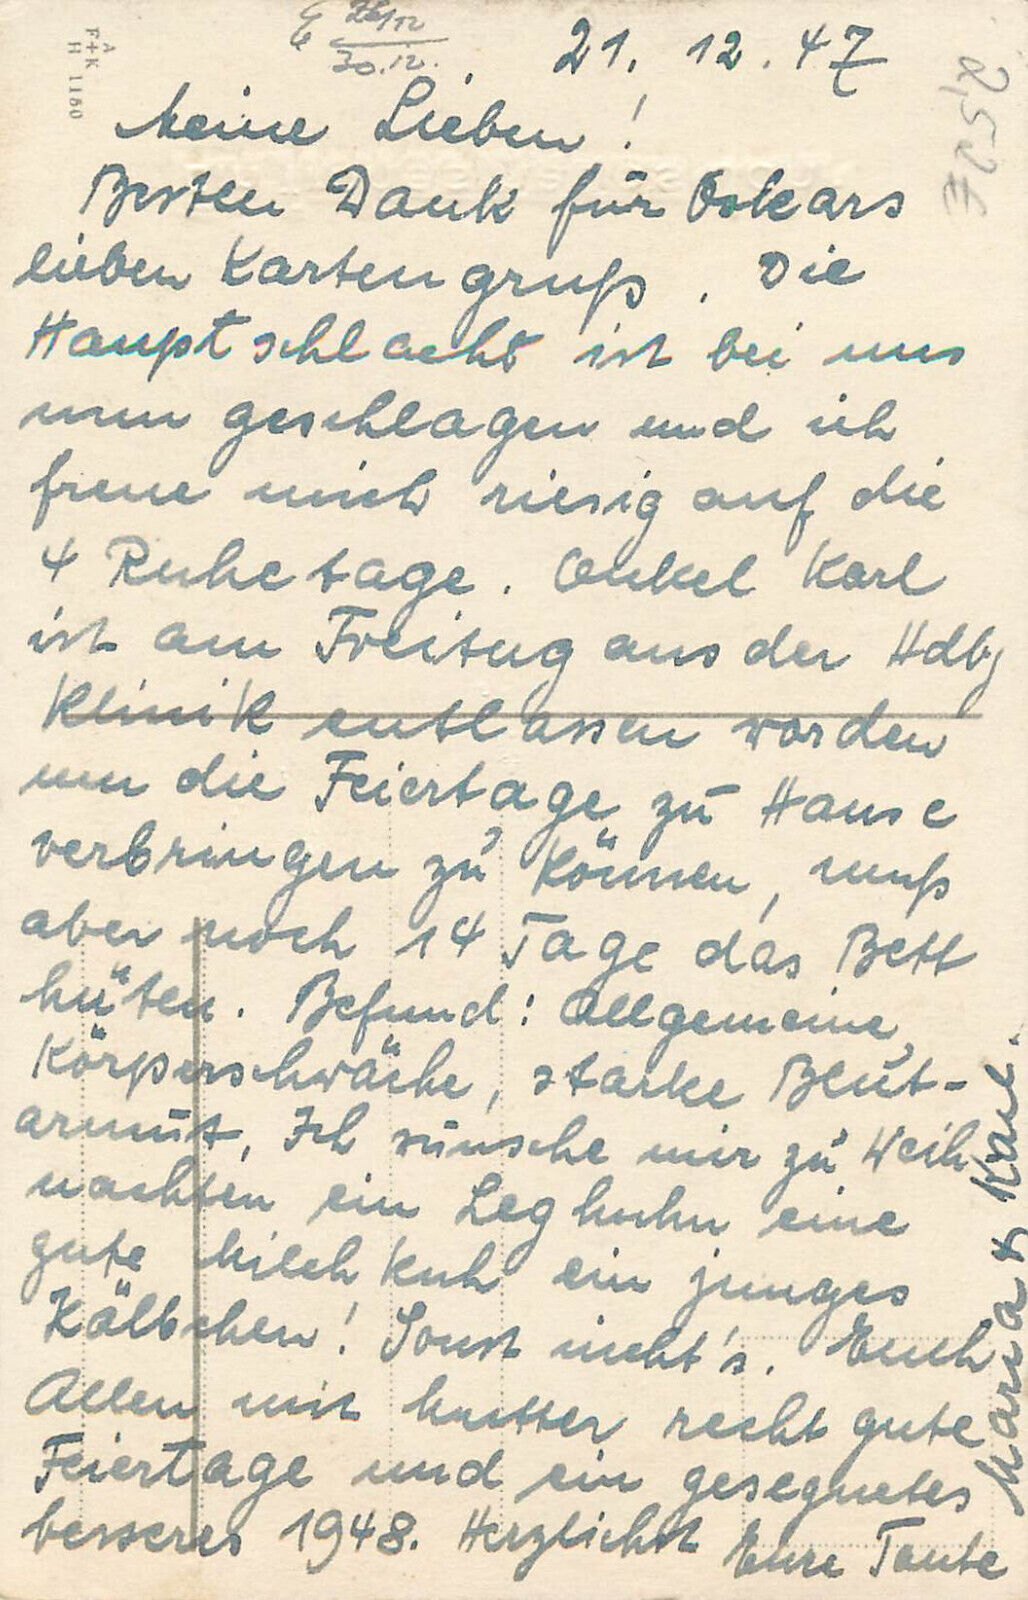 30.12.
21. 12. 47
A
F+K
H 1150
Meine Lieben!
Besten Dank für Oskars
lieben Kartengruß. Die
Hauptschlacht ist bei uns
nun geschlagen und ich
freue mich riesig auf die
4 Ruhetage. Onkel Karl
ist am Freitag aus der Hdbg
Klinik entlassen worden
um die Feiertage zu Hause
verbringen zu können, muß
aber noch 14 Tage das Bett
hüten. Befund: Allgemeine,
Körperschwäche, starke Blut-
armut, Ich wünsche mir zu Weih
nachten ein Leghuhn eine
gute Milchkuh ein junges
Kälbchen! Sonst nicht's. Euch
Allen mit Mutter recht gute
Feiertage und ein gesegnetes
besseres 1948. Herzlichst Eure Tante